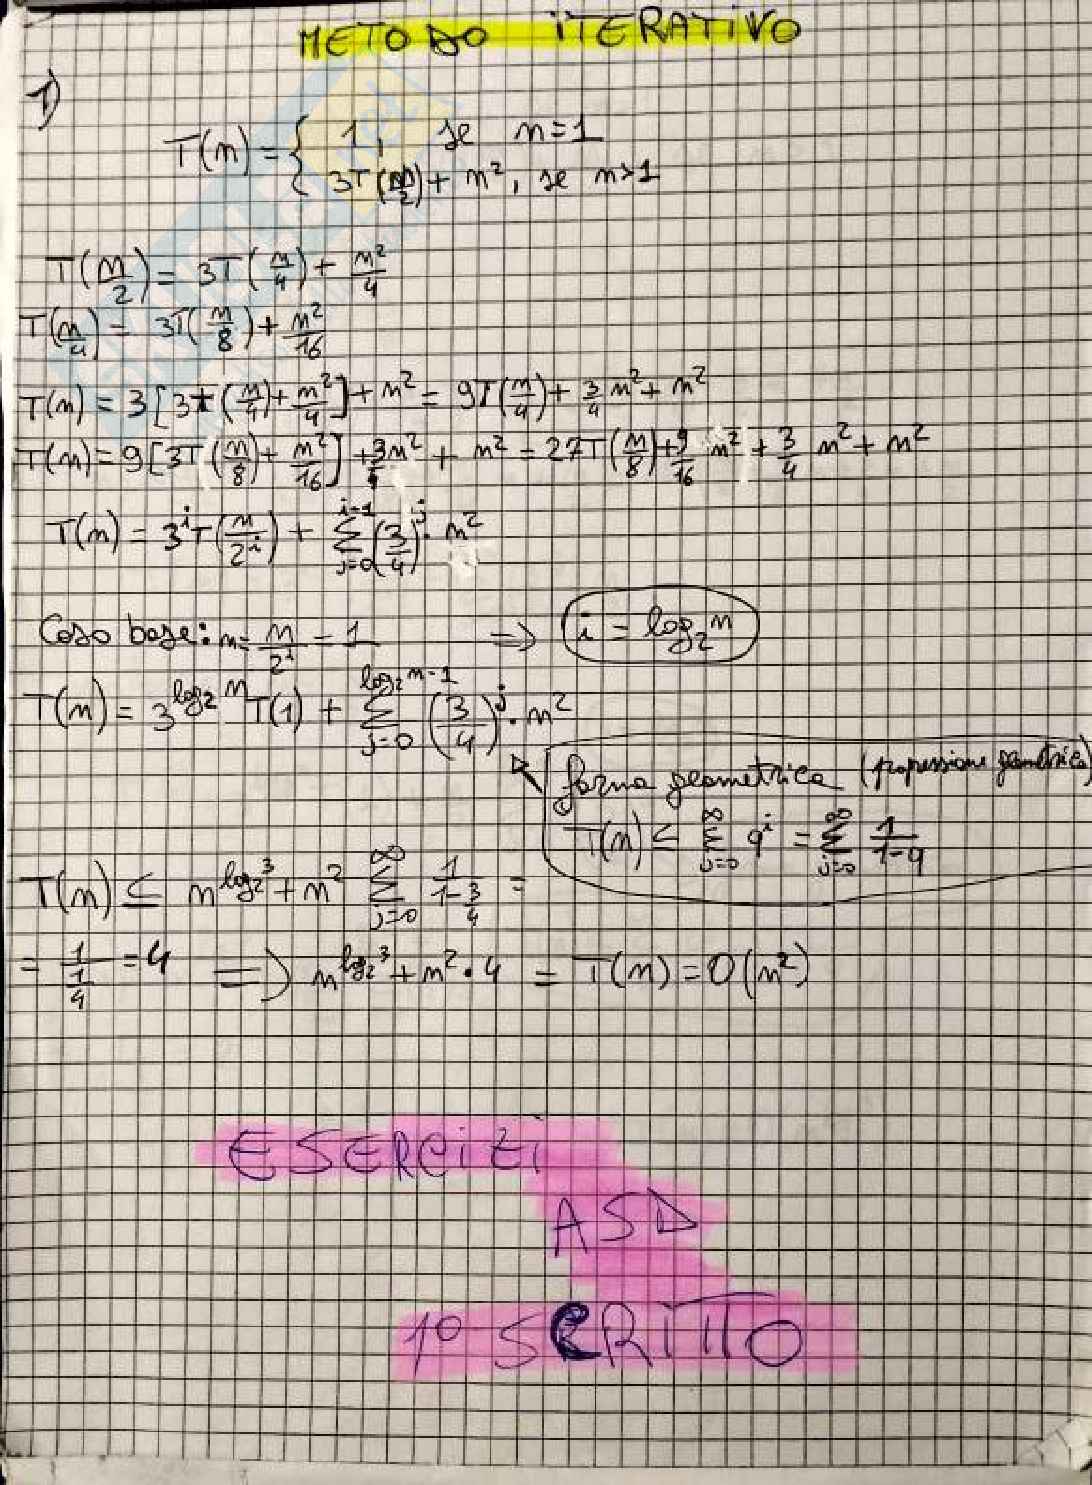 METODO iTERATiVO
1)
T(n) = { 1, se n=1
3T(n/2) + n², se n>1
T(n/2) = 3T(n/4) + n²/4
T(n/4) = 3T(n/8) + n²/16
T(n) = 3[3T(n/4) + n²/4] + n² = 9T(n/4) + 3/4 n² + n²
T(n) = 9[3T(n/8) + n²/16] + 3/4 n² + n² = 27T(n/8) + 9/16 n² + 3/4 n² + n²
T(n) = 3^i T(n/2^i) + Σ_{j=0}^{i-1} (3/4)^j · n²
Caso base: n = n/2^i = 1 => i = log₂n
T(n) = 3^{log₂n} T(1) + Σ_{j=0}^{log₂n-1} (3/4)^j · n²
forma geometrica (progressione geometrica)
T(n) ≤ Σ_{j=0}^{∞} q^i = Σ_{j=0}^{∞} 1/(1-q)
T(n) ≤ n^{log₂3} + n² Σ_{j=0}^{∞} 1/(1-3/4) =
= 1/(1/4) = 4 => n^{log₂3} + n² · 4 = T(n) = O(n²)
ESERCiZi
ASD
1° SCRITTO